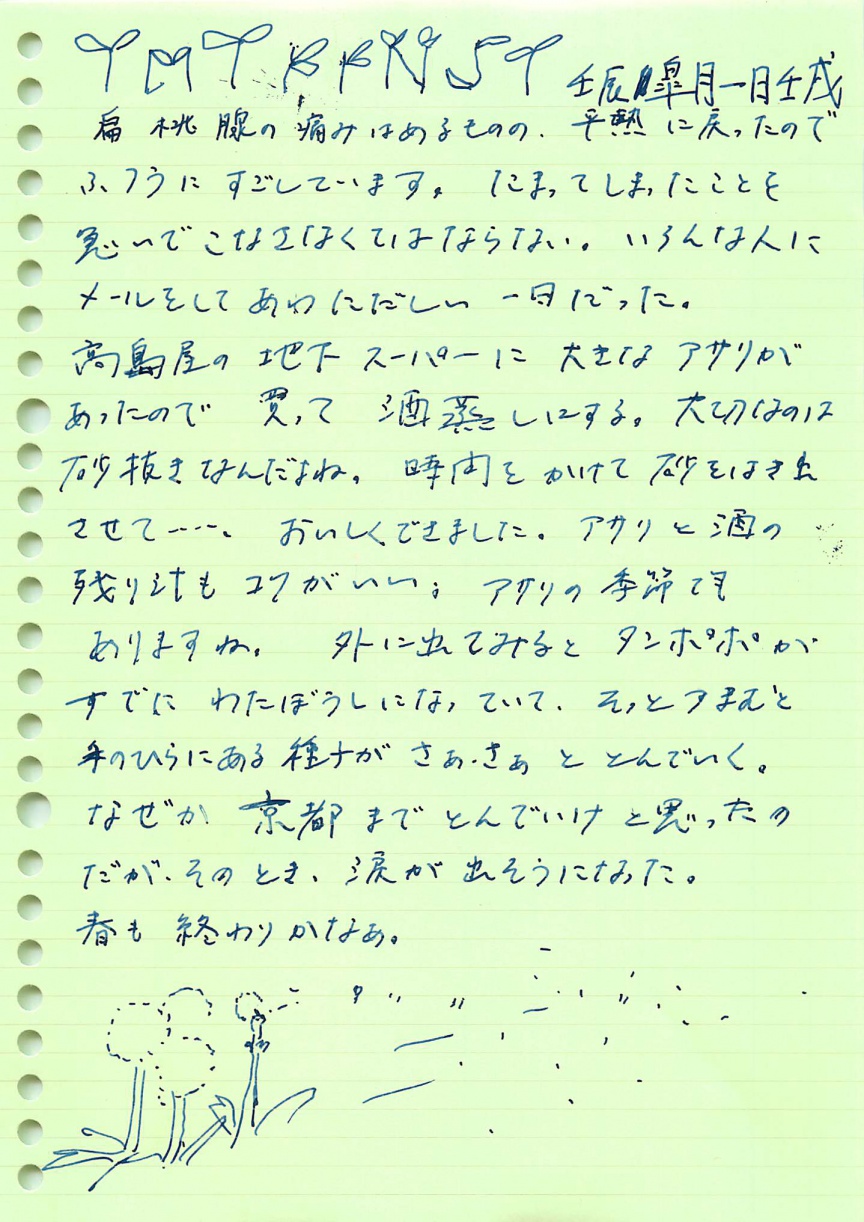 壬辰皐月一日壬戌
扁桃腺の痛みはあるものの、平熱に戻ったので
ふつうにすごしています。たまってしまったことを
急いでこなさなくてはならない。いろんな人に
メールをしてあわただしい一日だった。
高島屋の地下スーパーに大きなアサリが
あったので買って酒蒸しにする。大切なのは
砂抜きなんだよね。時間をかけて砂をはき出
させて……、おいしくできました。アサリと酒の
残り汁もコクがいい；アサリの季節でも
ありますね。外に出てみるとタンポポが
すでにわたぼうしになっていて、そっとつまむと
手のひらにある種子がさぁ、さぁととんでいく。
なぜか京都までとんでいけと思ったの
だが、そのとき、涙が出そうになった。
春も終わりかなぁ。